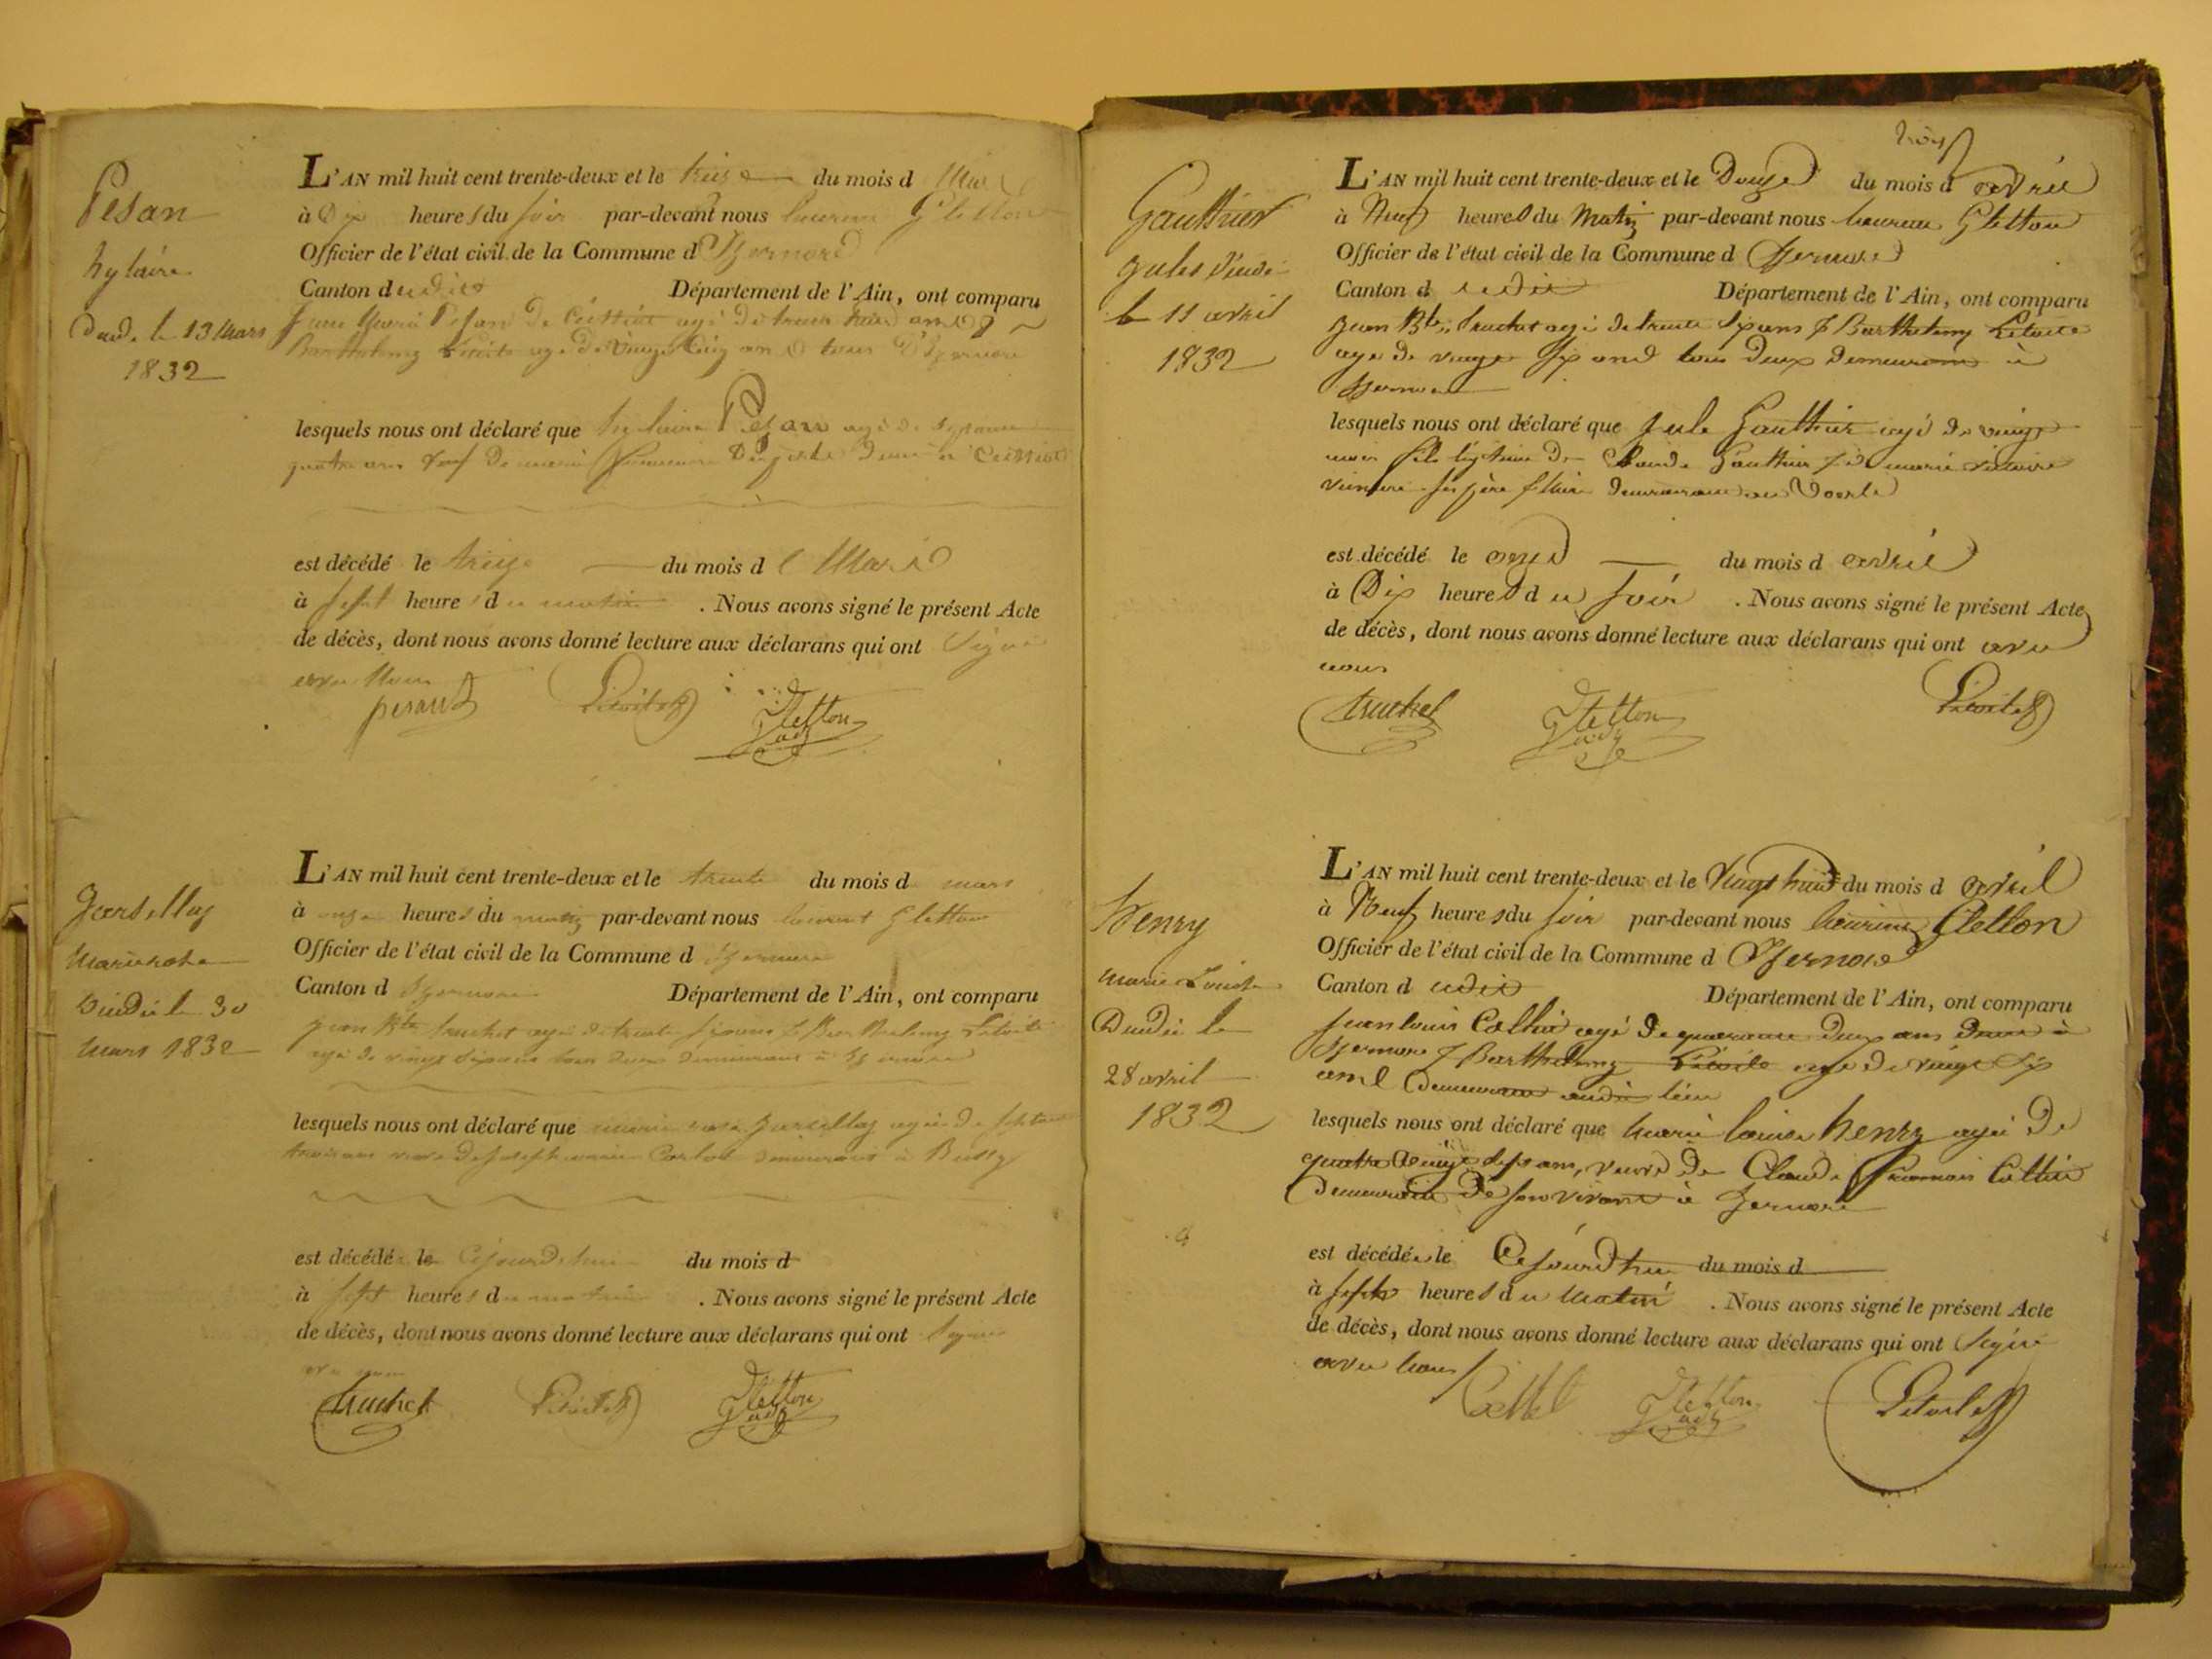 Pesan
hylaire
Dud. le 13 Mars
1832
L'AN mil huit cent trente-deux et le treize du mois d Mars
à Dix heures du soir par-devant nous Gletton
Officier de l'état civil de la Commune d'Izernore
Canton dudit Département de l'Ain, ont comparu
Marie Pesan de Ceissiat agé de trente huit ans &
Barthelemy Letoile age de vingt Cinq ans tous D'Izernore
lesquels nous ont déclaré que hylaire Pesan agé de
quatre ans veuf de marie à Ceissiat
est décédé le treize du mois d e Mars
à sept heures du matin . Nous avons signé le présent Acte
de décès, dont nous avons donné lecture aux déclarans qui ont Signé
avec Nous
pesand Letoile Gletton adj
Marie rose
Dudit le 30
mars 1832
L'AN mil huit cent trente-deux et le trente du mois d mars
à onze heures du matin par-devant nous laurent Gletton
Officier de l'état civil de la Commune d Izernore
Canton d Izernore Département de l'Ain, ont comparu
Jean Bte truchet agé de trente six ans & Barthelemy Letoile
agé de vingt six ans tous deux demeurant à Izernore
lesquels nous ont déclaré que marie rose agée de septante
trois ans veuve de Joseph marie demeurant à Bussy
est décédée le Cejourdhui du mois d
à sept heures du matin . Nous avons signé le présent Acte
de décès, dont nous avons donné lecture aux déclarans qui ont Signé
avec nous
truchet Letoile Gletton adj
trois
Gauthier
Jules
le 11 avril
1832
L'AN mil huit cent trente-deux et le Douze du mois d avril
à Neuf heures du Matin par-devant nous Gletton
Officier de l'état civil de la Commune d Izernore
Canton d udit Département de l'Ain, ont comparu
Jean Bte truchet agé de trente six ans & Barthelemy Letoile
age de vingt six ans tous deux demeurans à
Izernore
lesquels nous ont déclaré que Jule Gauthier agé de vingt
mois fils légitime de Claude Gauthier & de marie
ses père & Mère demeurant au Voerle
est décédé le onze du mois d avril
à Dix heures du Soir . Nous avons signé le présent Acte
de décès, dont nous avons donné lecture aux déclarans qui ont avec
nous
truchet Gletton adj Letoile
Henry
Marie Louise
Dudit le
28 avril
1832
L'AN mil huit cent trente-deux et le Vingt huit du mois d avril
à Neuf heures du soir par-devant nous Gletton
Officier de l'état civil de la Commune d Izernore
Canton d udit Département de l'Ain, ont comparu
Jean louis Collet agé de quarante deux ans Dem à
Izernore & Barthelemy Letoile age de vingt six
ans demeurant audit lieu
lesquels nous ont déclaré que Marie louise henry agée de
quatre vingt sept ans, veuve de Claude francois Collet
demeurant de son vivant à Izernore
est décédée le Cejourdhui du mois d
à sept heures du Matin . Nous avons signé le présent Acte
de décès, dont nous avons donné lecture aux déclarans qui ont Signé
avec nous
Collet Gletton adj Letoile